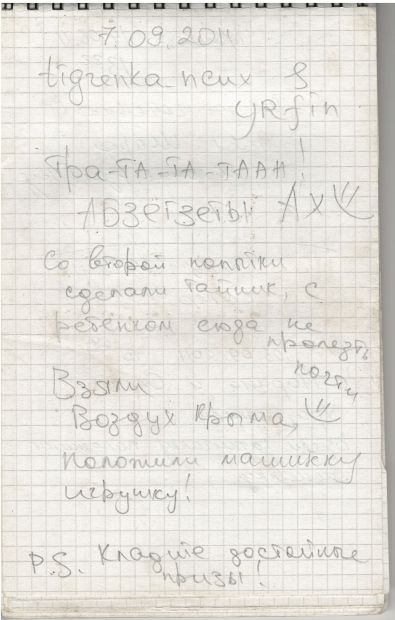 7.09.2011
tigrenka-псих &
YRfin
Тра-ТА-ТА-ТААН!
АБЗЕТЗЕТЫ АХ
Со второй попытки
сделали тайник, с
ребёнком сюда не
пролезть
почти
Взяли
Воздух Крыма,
положили машинку
игрушку!
P.S. Кладите достойные
призы!